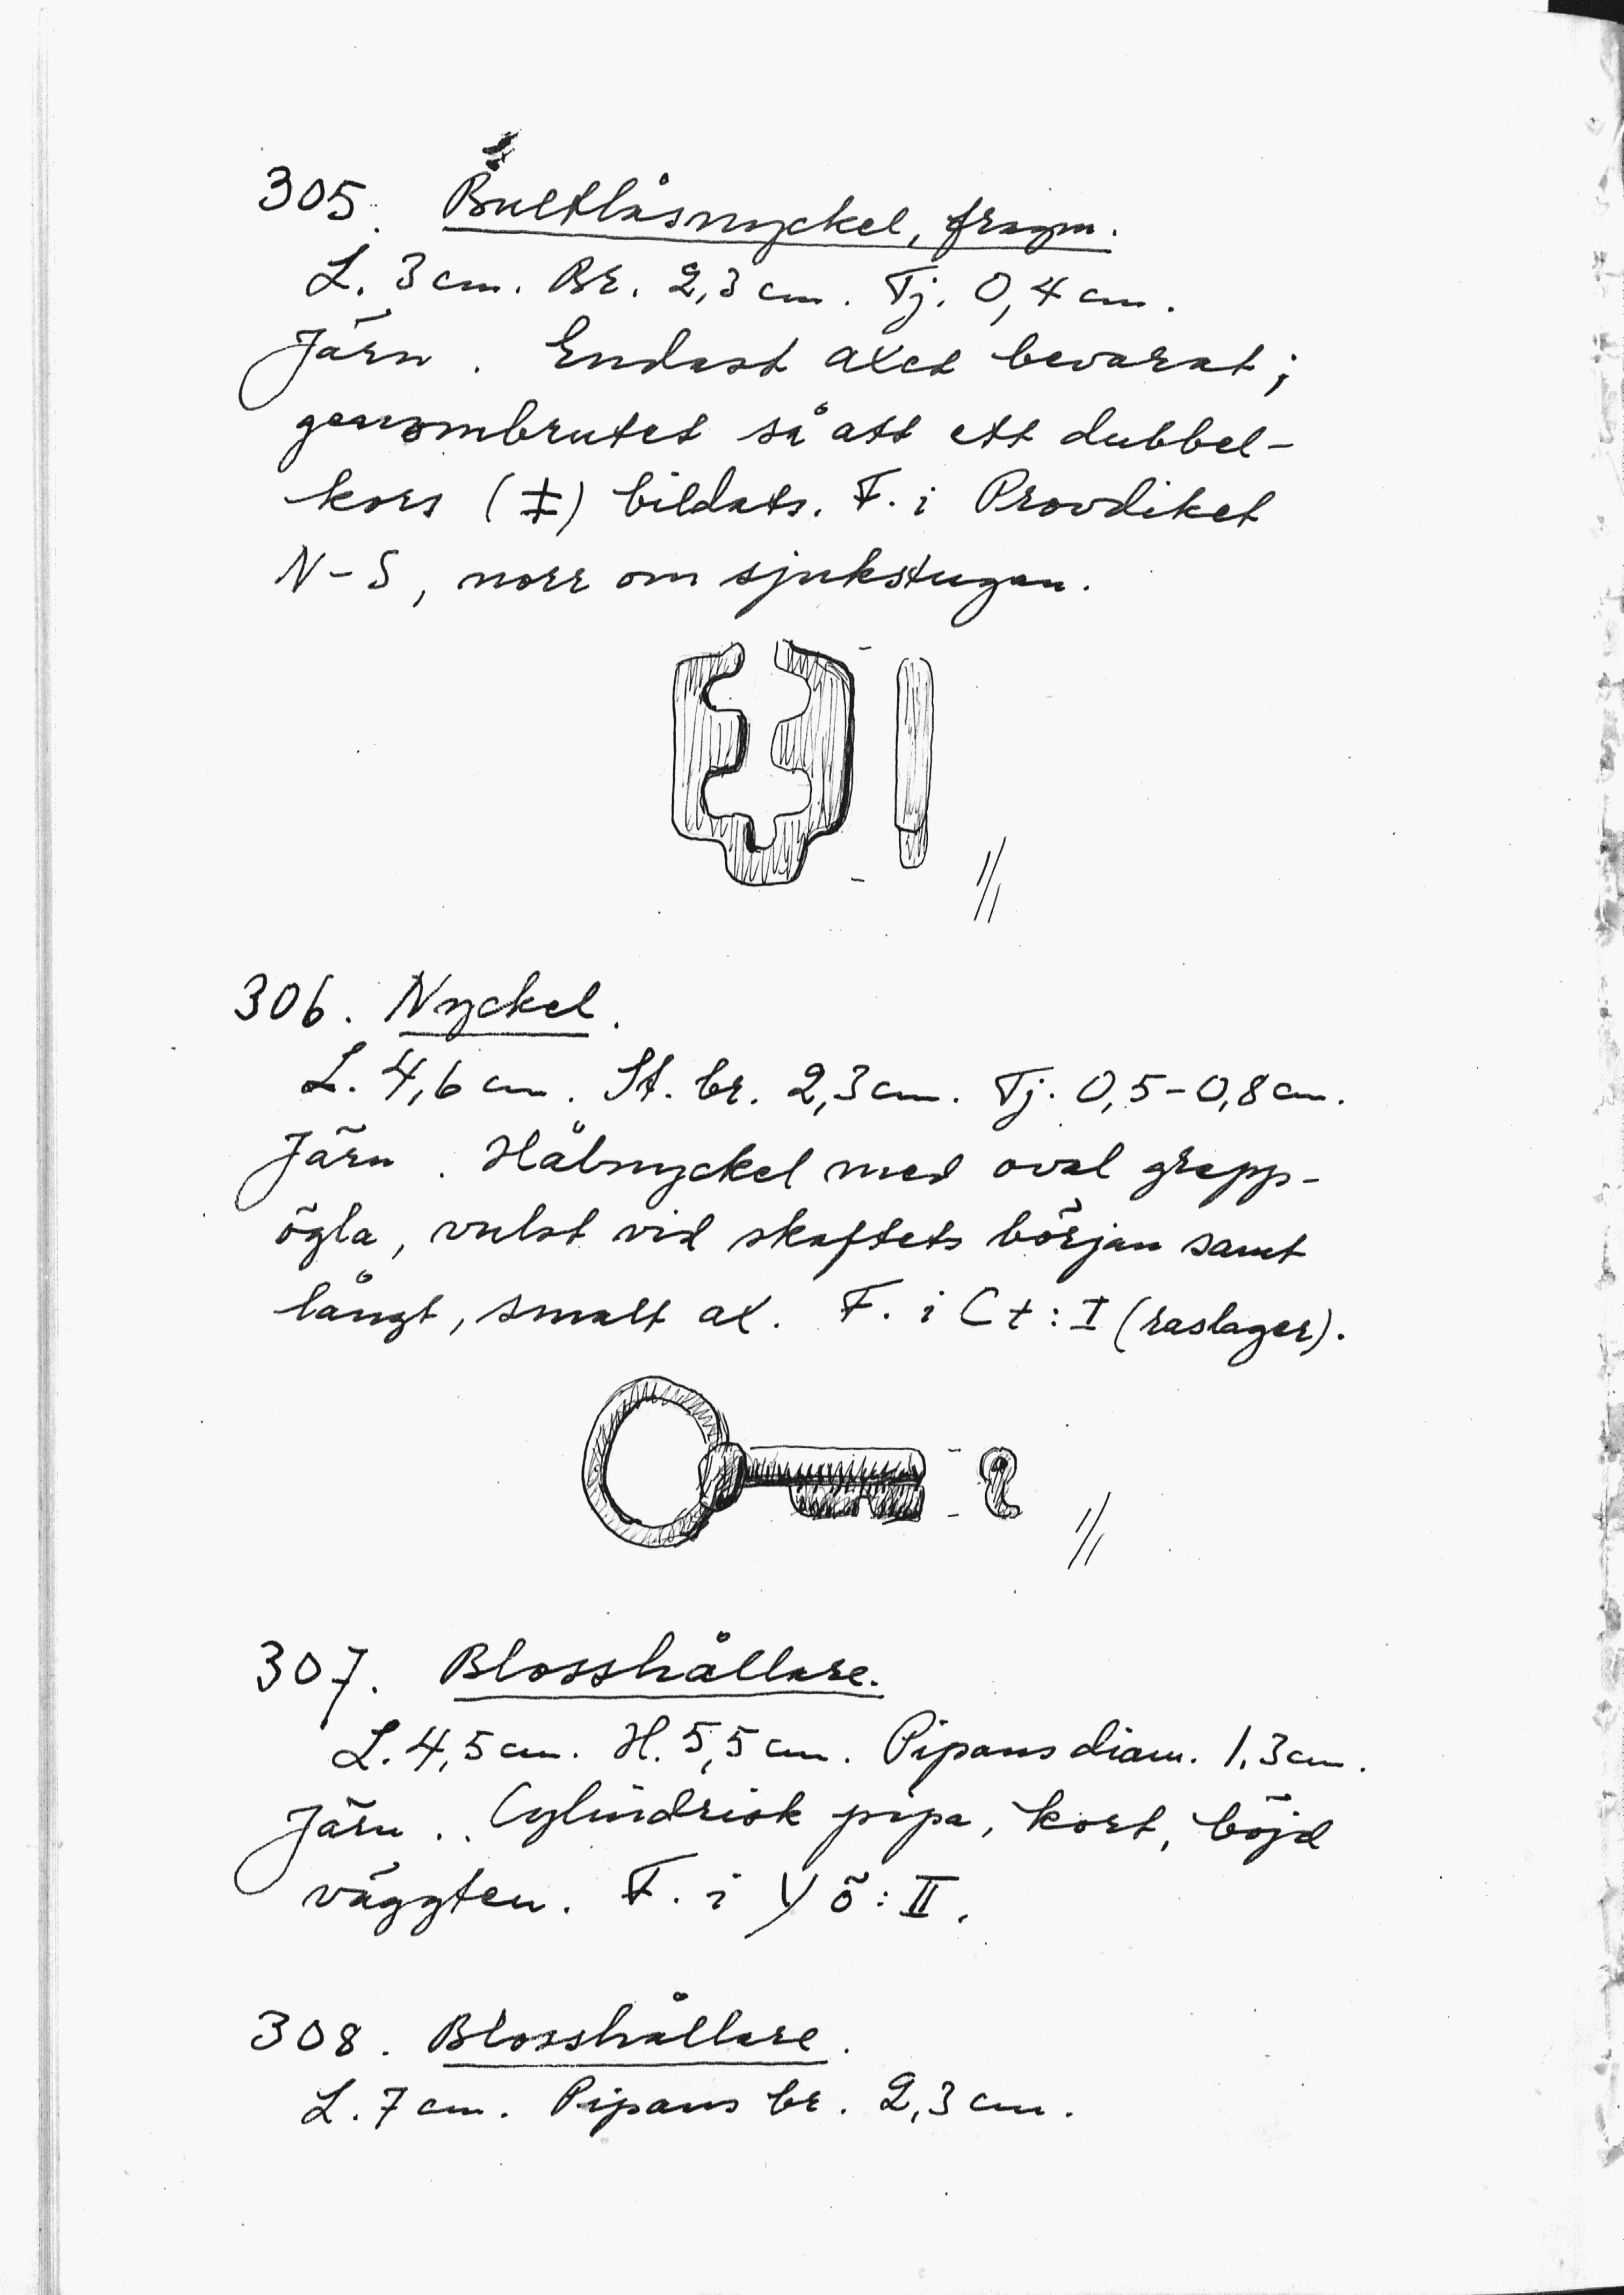 305. Bultlåsnyckel, fragm.
L. 3 cm. Br. 2,3 cm. Tj. 0,4 cm.
Järn. Endast axet bevarat;
genombrutet så att ett dubbel-
kors (‡) bildats. F. i Provdiket
N-S, norr om sjukstugan.
1/1
306. Nyckel.
L. 4,6 cm. St. br. 2,3 cm. Tj. 0,5-0,8 cm.
Järn. Hålnyckel med oval grepp-
ögla, vulst vid skaftets början samt
långt, smalt ax. F. i C t: I (raslager).
1/1
307. Blosshållare.
L. 4,5 cm. H. 5,5 cm. Pipans diam. 1,3 cm.
Järn. Cylindrisk pipa, kort, böjd
väggten. F. i Y ö: II.
308. Blosshållare.
L. 7 cm. Pipans br. 2,3 cm.